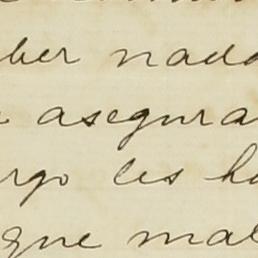 ber nada
asegura
rgo les ha
que mal